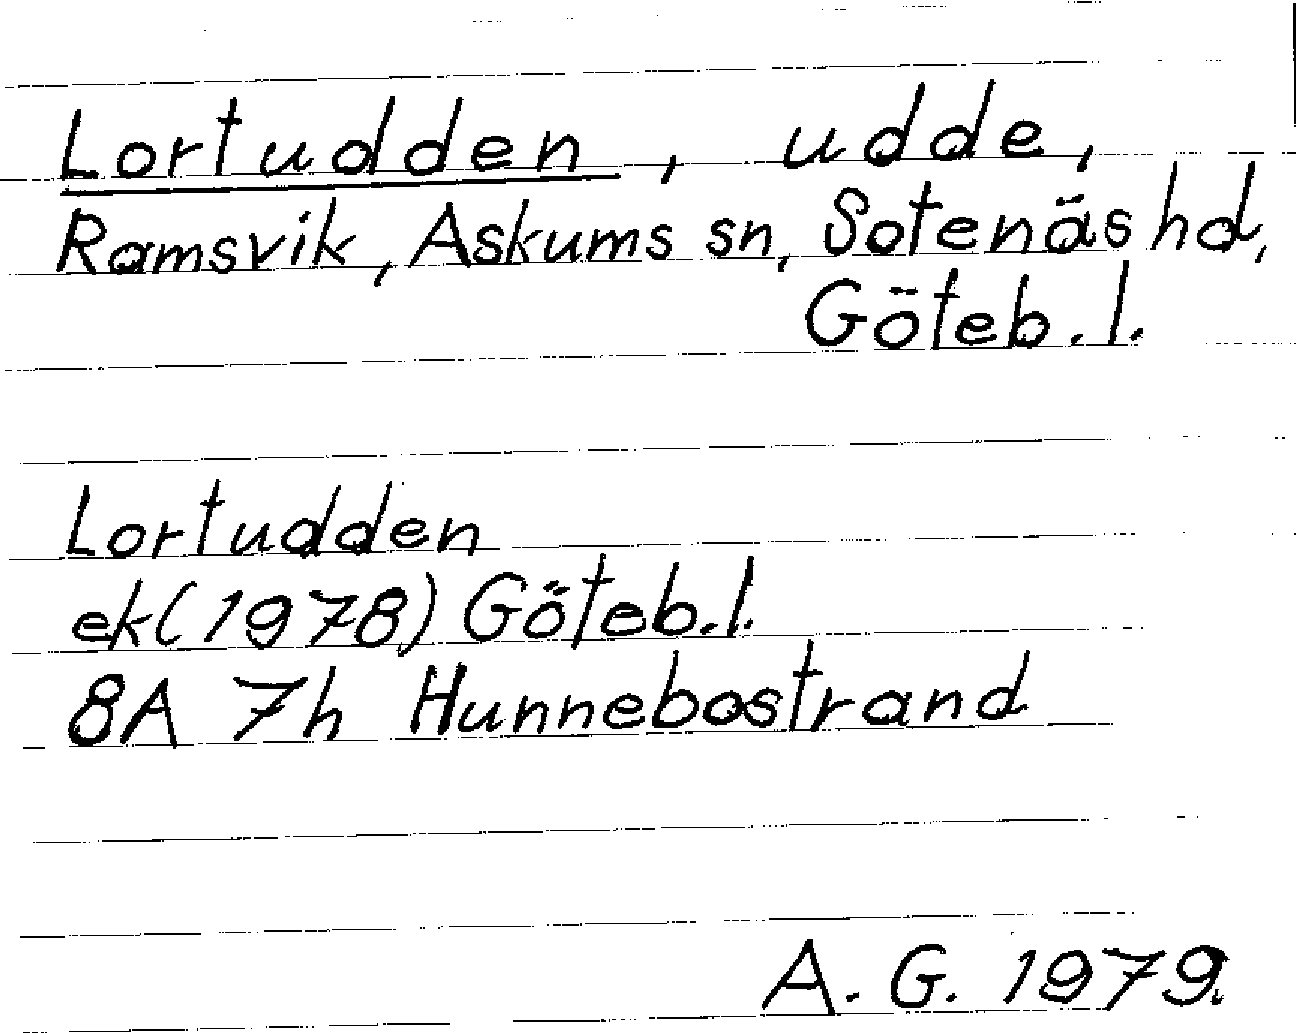 Lortudden, udde,
Ramsvik, Askums sn, Sotenäs hd,
Göteb. l.
Lortudden
ek(1978) Göteb. l.
8A 7h Hunnebostrand
A. G. 1979.